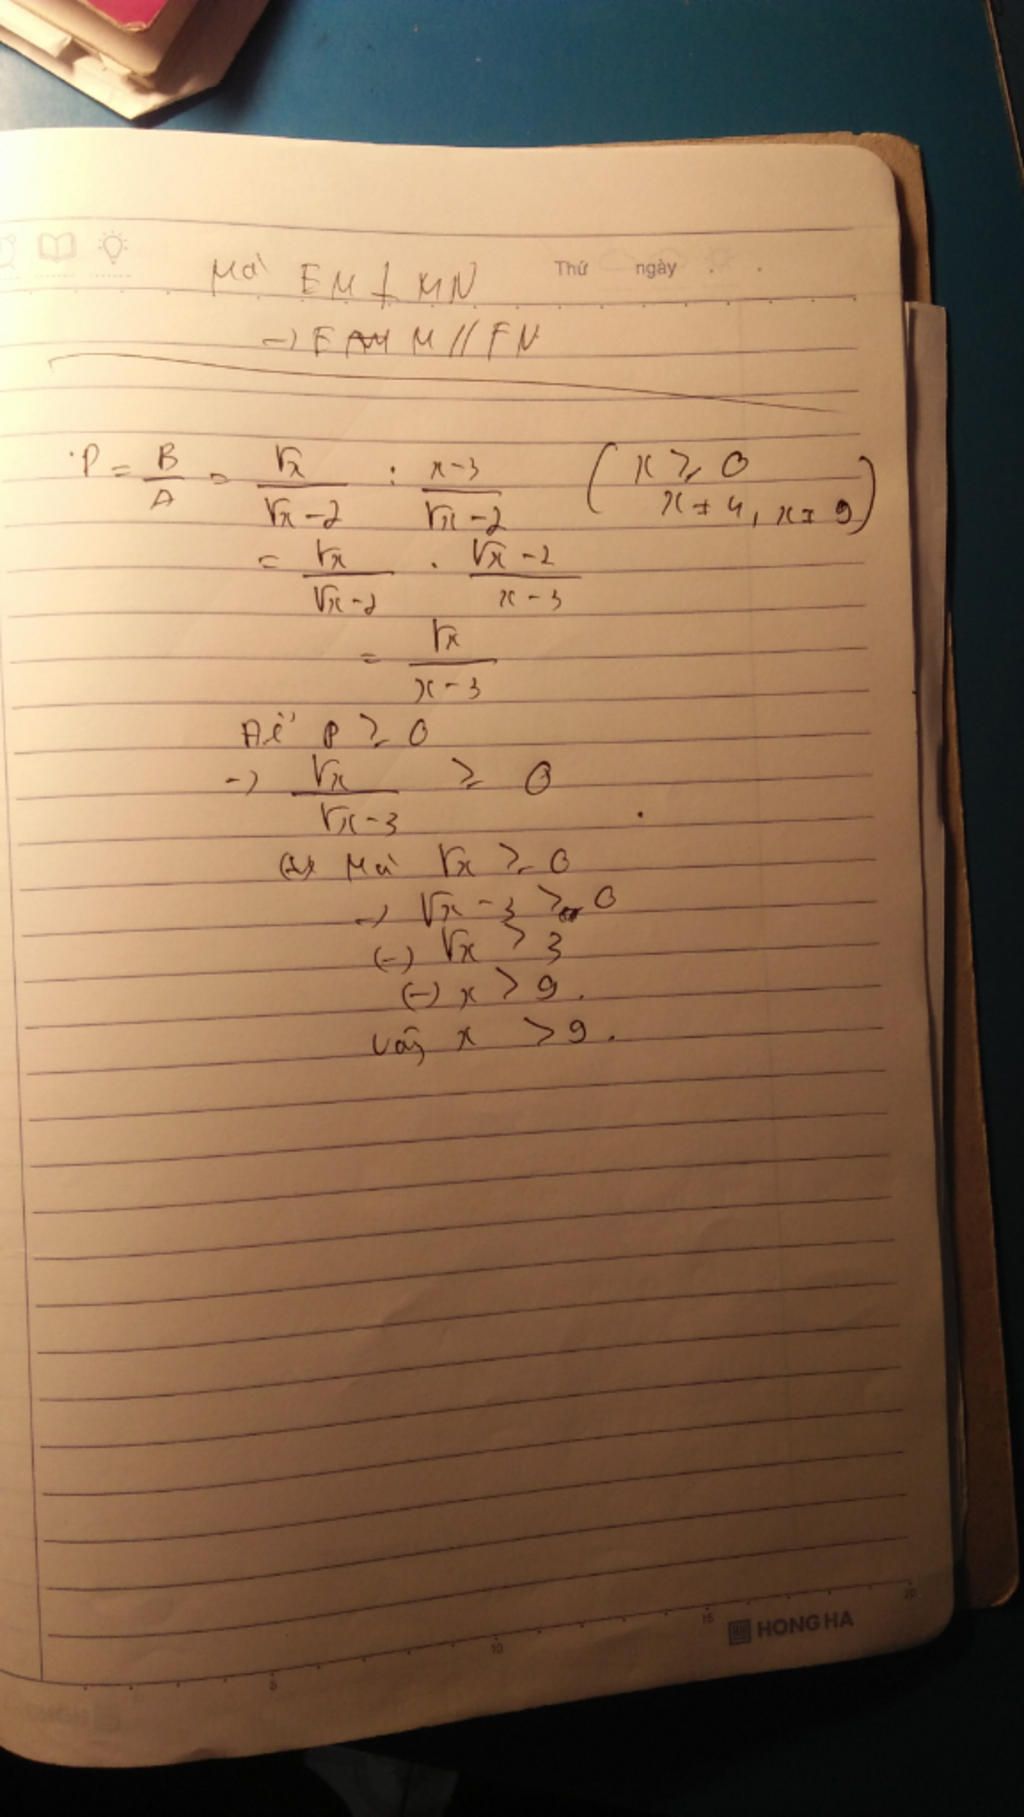 Thứ ngày
Mà EM ⊥ MN
→ EM // FN
P = B/A = √x/(√x-2) : x-3/(√x-2) (x ≥ 0
x ≠ 4, x ≠ 9)
= √x/(√x-2) . (√x-2)/(x-3)
= √x/(x-3)
Để P ≥ 0
→ √x/(√x-3) ≥ 0
Mà √x ≥ 0
→ √x-3 > 0
(-) √x > 3
(-) x > 9.
Vậy x > 9.
5 10 15 20
HONG HA